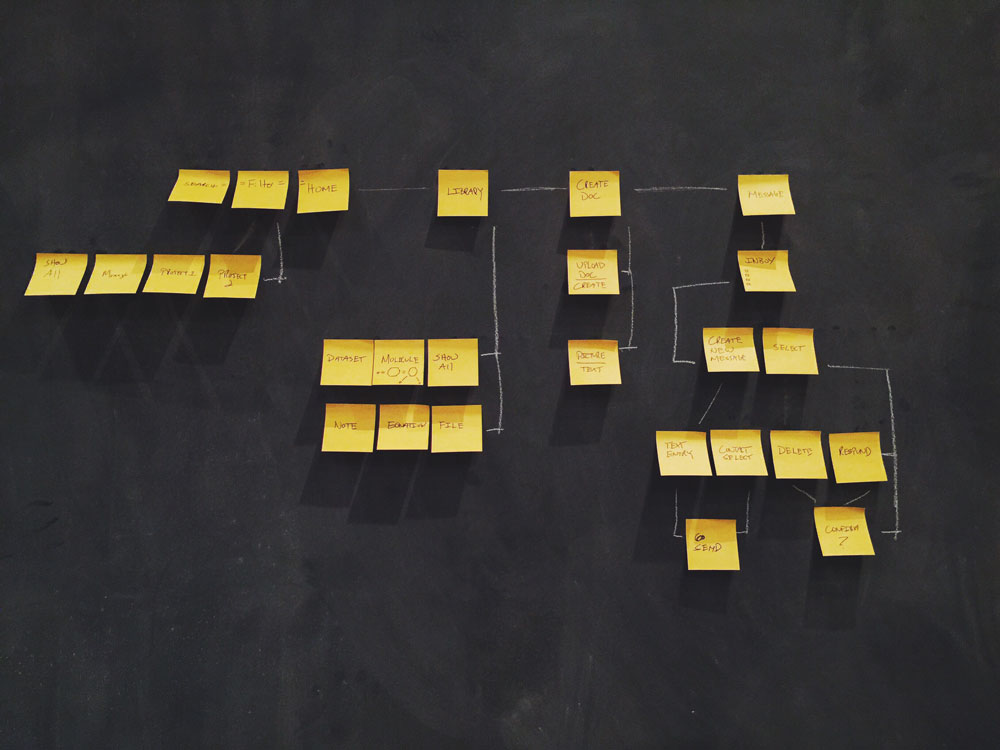 SEARCH =
= Filter =
= HOME
LIBRARY
CREATE
DOC
MESSAGE
SHOW
All
PROJECT 1
PROJECT
2
UPLOAD
DOC
CREATE
INBOX
DATASET
MOLECULE
SHOW
All
PICTURE
TEXT
CREATE
NEW
MESSAGE
SELECT
NOTE
EQUATION
FILE
TEXT
ENTRY
SELECT
DELETE
SEND
CONFIRM
?